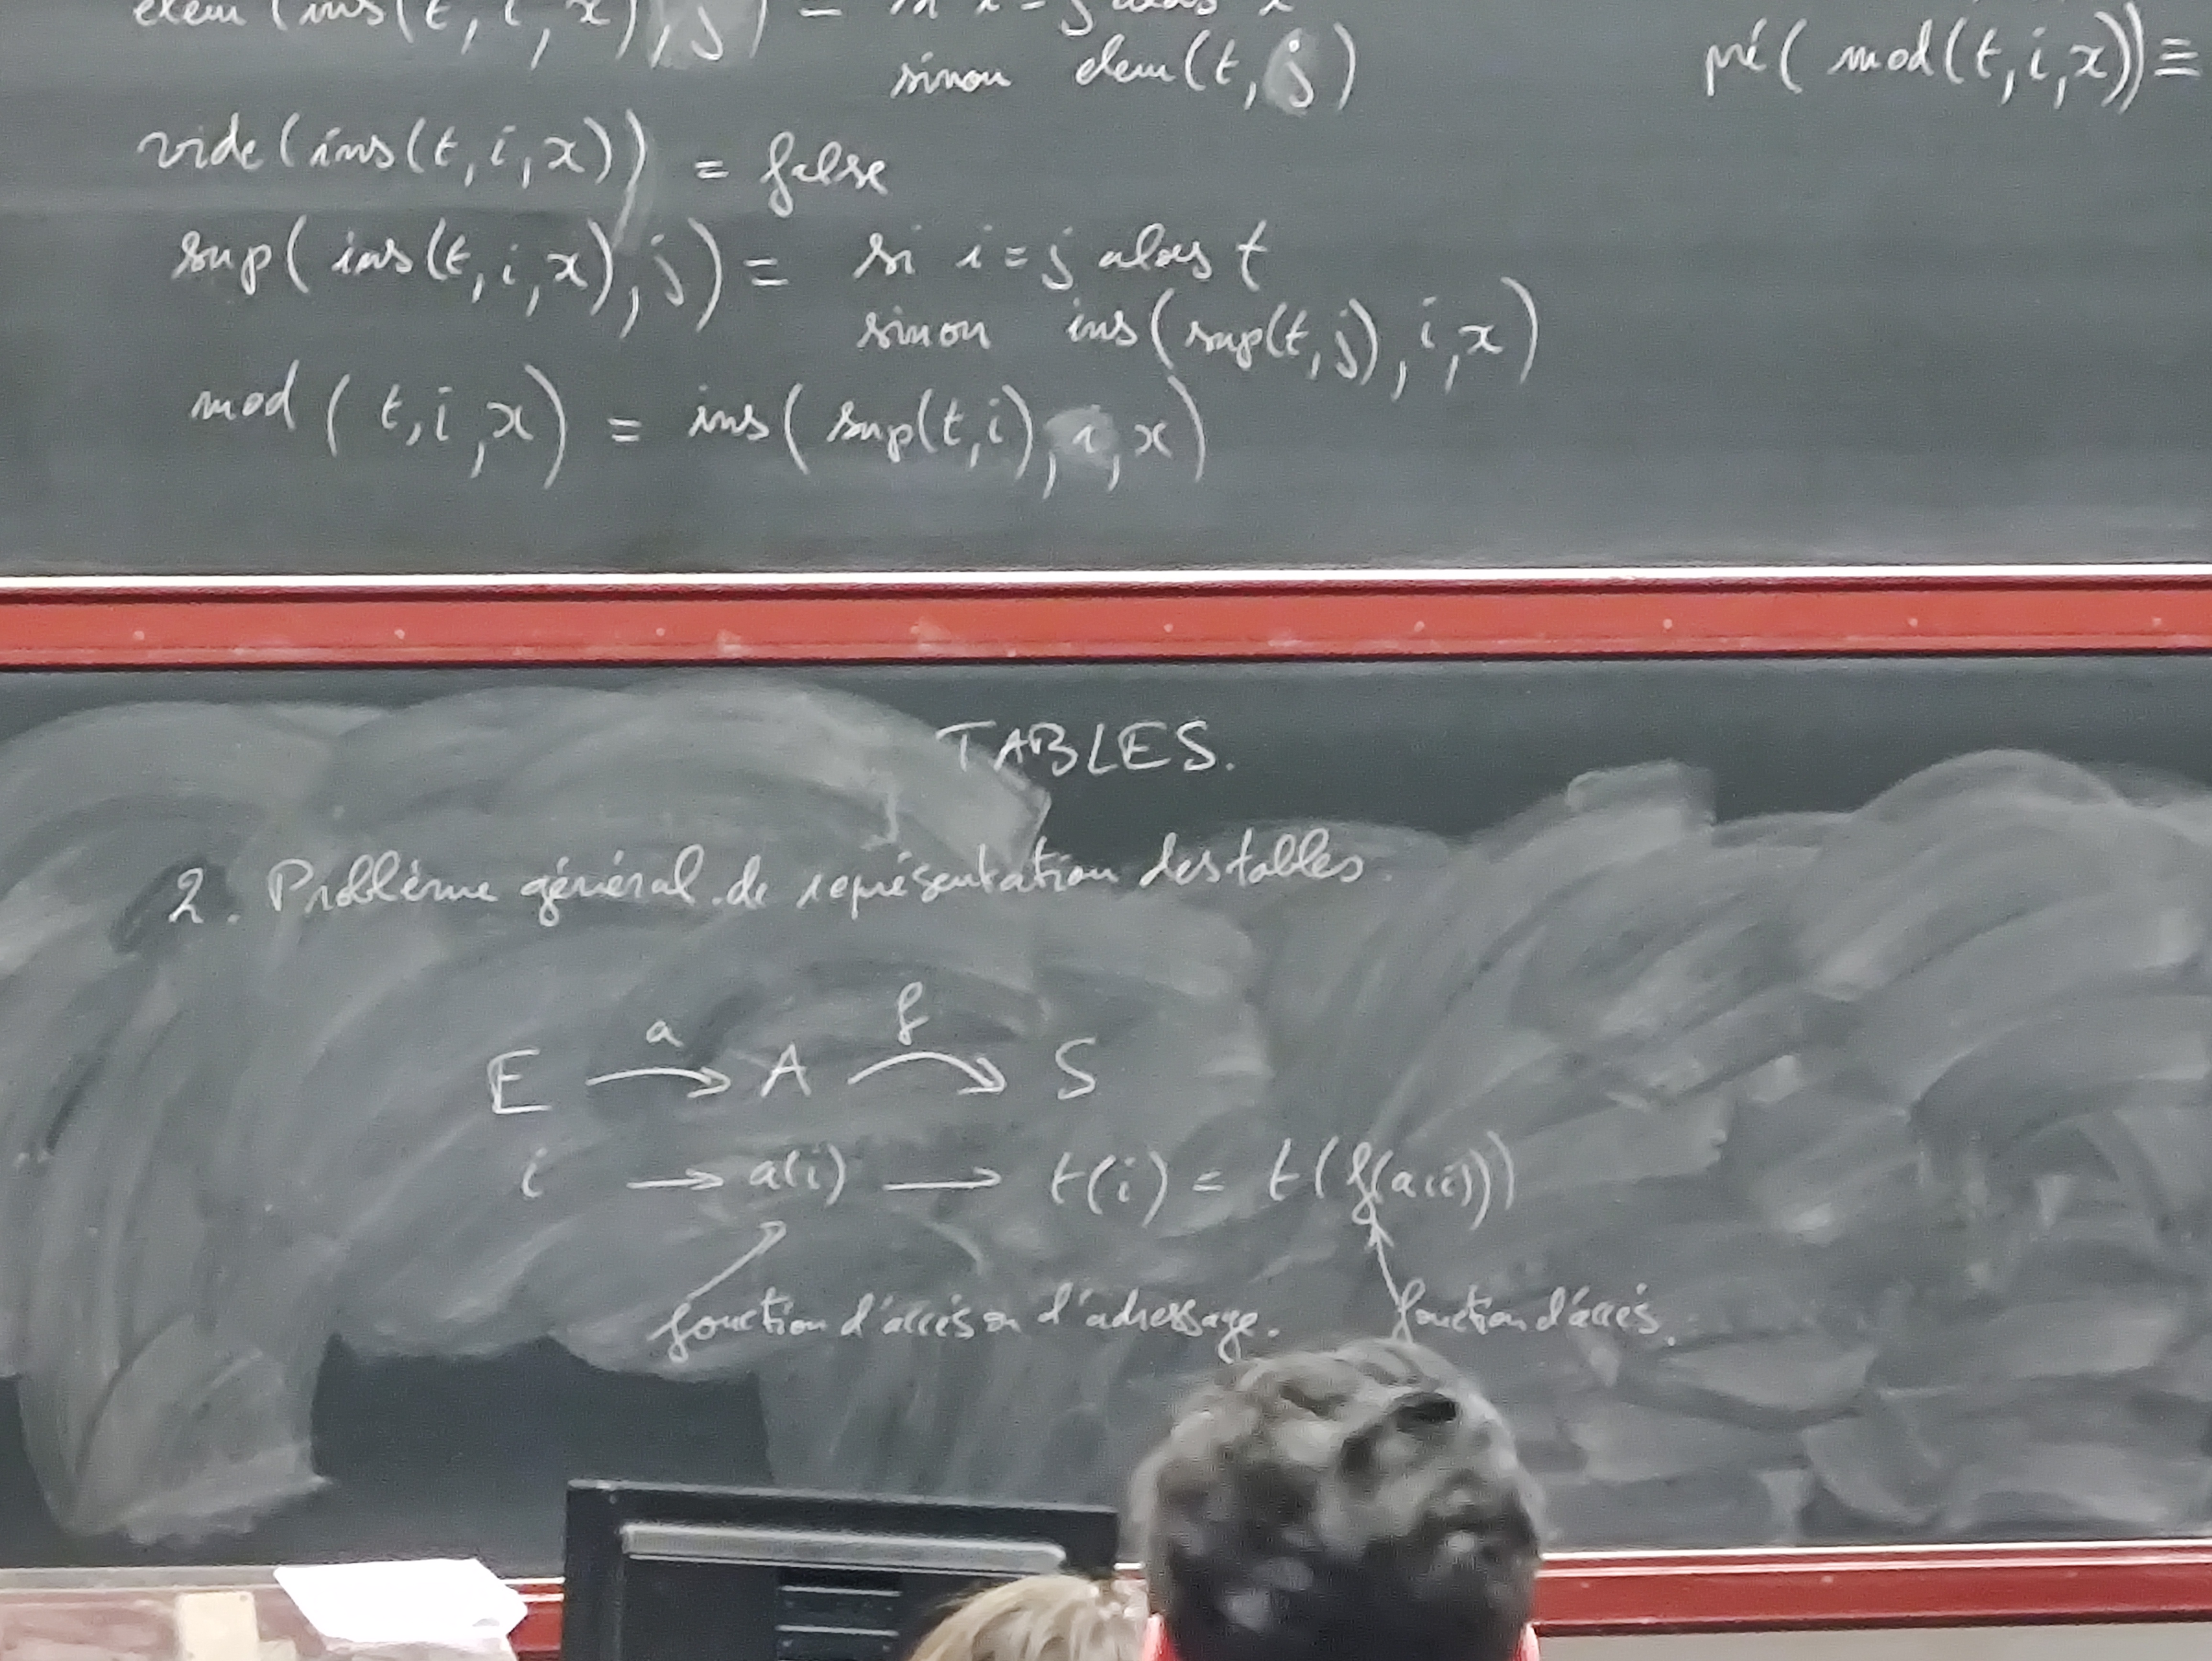 elem (ins(t, i, x), j) = si i = j alors x
sinon elem(t, j)
pré( mod(t,i,x)) ≡
vide(ins(t,i,x)) = false
sup( ins(t,i,x), j) = si i = j alors t
sinon ins(sup(t,j), i, x)
mod ( t, i, x) = ins( sup(t,i), i, x)
TABLES.
2. Problème général de représentation des tables.
a f
E → A → S
i → a(i) → t(i) = t(f(a(i)))
fonction d'accès ou d'adressage. fonction d'accès.